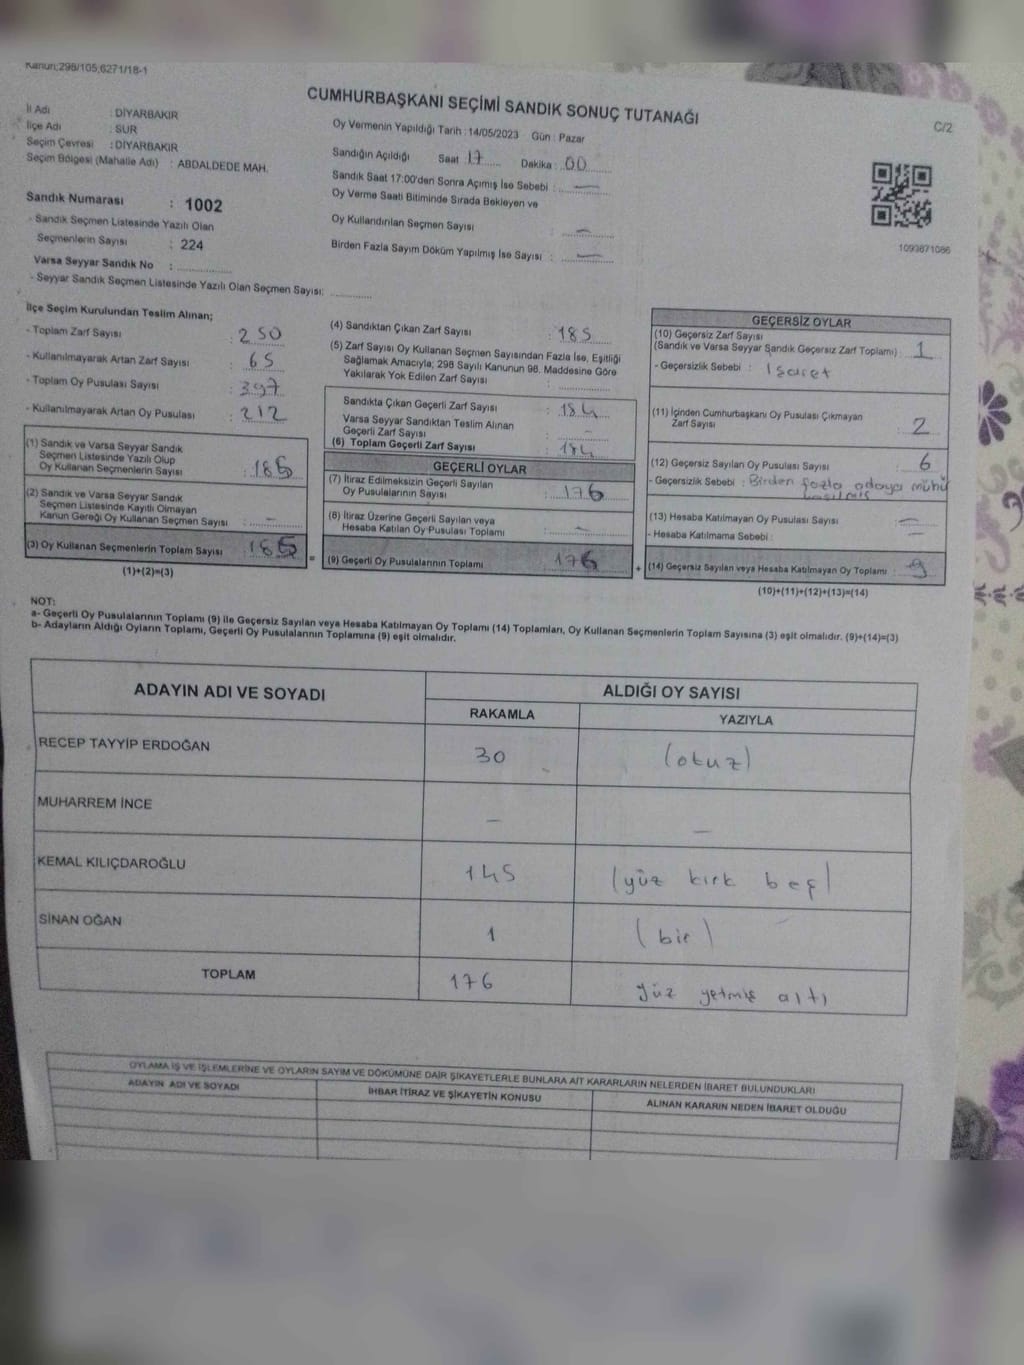 Kanun;298/105,6271/18-1
CUMHURBAŞKANI SEÇİMİ SANDIK SONUÇ TUTANAĞI
C/2
İl Adı : DİYARBAKIR
İlçe Adı : SUR
Seçim Çevresi : DİYARBAKIR
Seçim Bölgesi (Mahalle Adı) : ABDALDEDE MAH.
Sandık Numarası : 1002
- Sandık Seçmen Listesinde Yazılı Olan
Seçmenlerin Sayısı : 224
Varsa Seyyar Sandık No :
- Seyyar Sandık Seçmen Listesinde Yazılı Olan Seçmen Sayısı:
Oy Vermenin Yapıldığı Tarih : 14/05/2023 Gün : Pazar
Sandığın Açıldığı Saat : 17 Dakika : 00
Sandık Saat 17:00'den Sonra Açımış İse Sebebi : —
Oy Verme Saati Bitiminde Sırada Bekleyen ve
Oy Kullandırılan Seçmen Sayısı : —
Birden Fazla Sayım Döküm Yapılmış İse Sayısı : —
1093871086
İlçe Seçim Kurulundan Teslim Alınan;
- Toplam Zarf Sayısı : 250
- Kullanılmayarak Artan Zarf Sayısı : 65
- Toplam Oy Pusulası Sayısı : 397
- Kullanılmayarak Artan Oy Pusulası : 212
(1) Sandık ve Varsa Seyyar Sandık
Seçmen Listesinde Yazılı Olup
Oy Kullanan Seçmenlerin Sayısı : 185
(2) Sandık ve Varsa Seyyar Sandık
Seçmen Listesinde Kayıtlı Olmayan
Kanun Gereği Oy Kullanan Seçmen Sayısı : —
(3) Oy Kullanan Seçmenlerin Toplam Sayısı : 185
(1)+(2)=(3)
=
(4) Sandıktan Çıkan Zarf Sayısı : 185
(5) Zarf Sayısı Oy Kullanan Seçmen Sayısından Fazla İse, Eşitliği
Sağlamak Amacıyla, 298 Sayılı Kanunun 98. Maddesine Göre
Yakılarak Yok Edilen Zarf Sayısı :
Sandıkta Çıkan Geçerli Zarf Sayısı : 184
Varsa Seyyar Sandıktan Teslim Alınan
Geçerli Zarf Sayısı : -
(6) Toplam Geçerli Zarf Sayısı : 184
GEÇERLİ OYLAR
(7) İtiraz Edilmeksizin Geçerli Sayılan
Oy Pusulalarının Sayısı : 176
(8) İtiraz Üzerine Geçerli Sayılan veya
Hesaba Katılan Oy Pusulası Toplamı : —
(9) Geçerli Oy Pusulalarının Toplamı : 176
+
GEÇERSİZ OYLAR
(10) Geçersiz Zarf Sayısı
(Sandık ve Varsa Seyyar Sandık Geçersiz Zarf Toplamı) : 1
- Geçersizlik Sebebi : İşaret
(11) İçinden Cumhurbaşkanı Oy Pusulası Çıkmayan
Zarf Sayısı : 2
(12) Geçersiz Sayılan Oy Pusulası Sayısı : 6
- Geçersizlik Sebebi : Birden fazla adaya mühür
basılmış
(13) Hesaba Katılmayan Oy Pusulası Sayısı : —
- Hesaba Katılmama Sebebi : —
(14) Geçersiz Sayılan veya Hesaba Katılmayan Oy Toplamı : 9
(10)+(11)+(12)+(13)=(14)
NOT:
a- Geçerli Oy Pusulalarının Toplamı (9) ile Geçersiz Sayılan veya Hesaba Katılmayan Oy Toplamı (14) Toplamları, Oy Kullanan Seçmenlerin Toplam Sayısına (3) eşit olmalıdır. (9)+(14)=(3)
b- Adayların Aldığı Oyların Toplamı, Geçerli Oy Pusulalarının Toplamına (9) eşit olmalıdır.
ADAYIN ADI VE SOYADI
ALDIĞI OY SAYISI
RAKAMLA YAZIYLA
RECEP TAYYİP ERDOĞAN 30 (otuz)
MUHARREM İNCE — —
KEMAL KILIÇDAROĞLU 145 (yüz kırk beş)
SİNAN OĞAN 1 (bir)
TOPLAM 176 yüz yetmiş altı
OYLAMA İŞ VE İŞLEMLERİNE VE OYLARIN SAYIM VE DÖKÜMÜNE DAİR ŞİKAYETLERLE BUNLARA AİT KARARLARIN NELERDEN İBARET BULUNDUKLARI
ADAYIN ADI VE SOYADI İHBAR İTİRAZ VE ŞİKAYETİN KONUSU ALINAN KARARIN NEDEN İBARET OLDUĞU